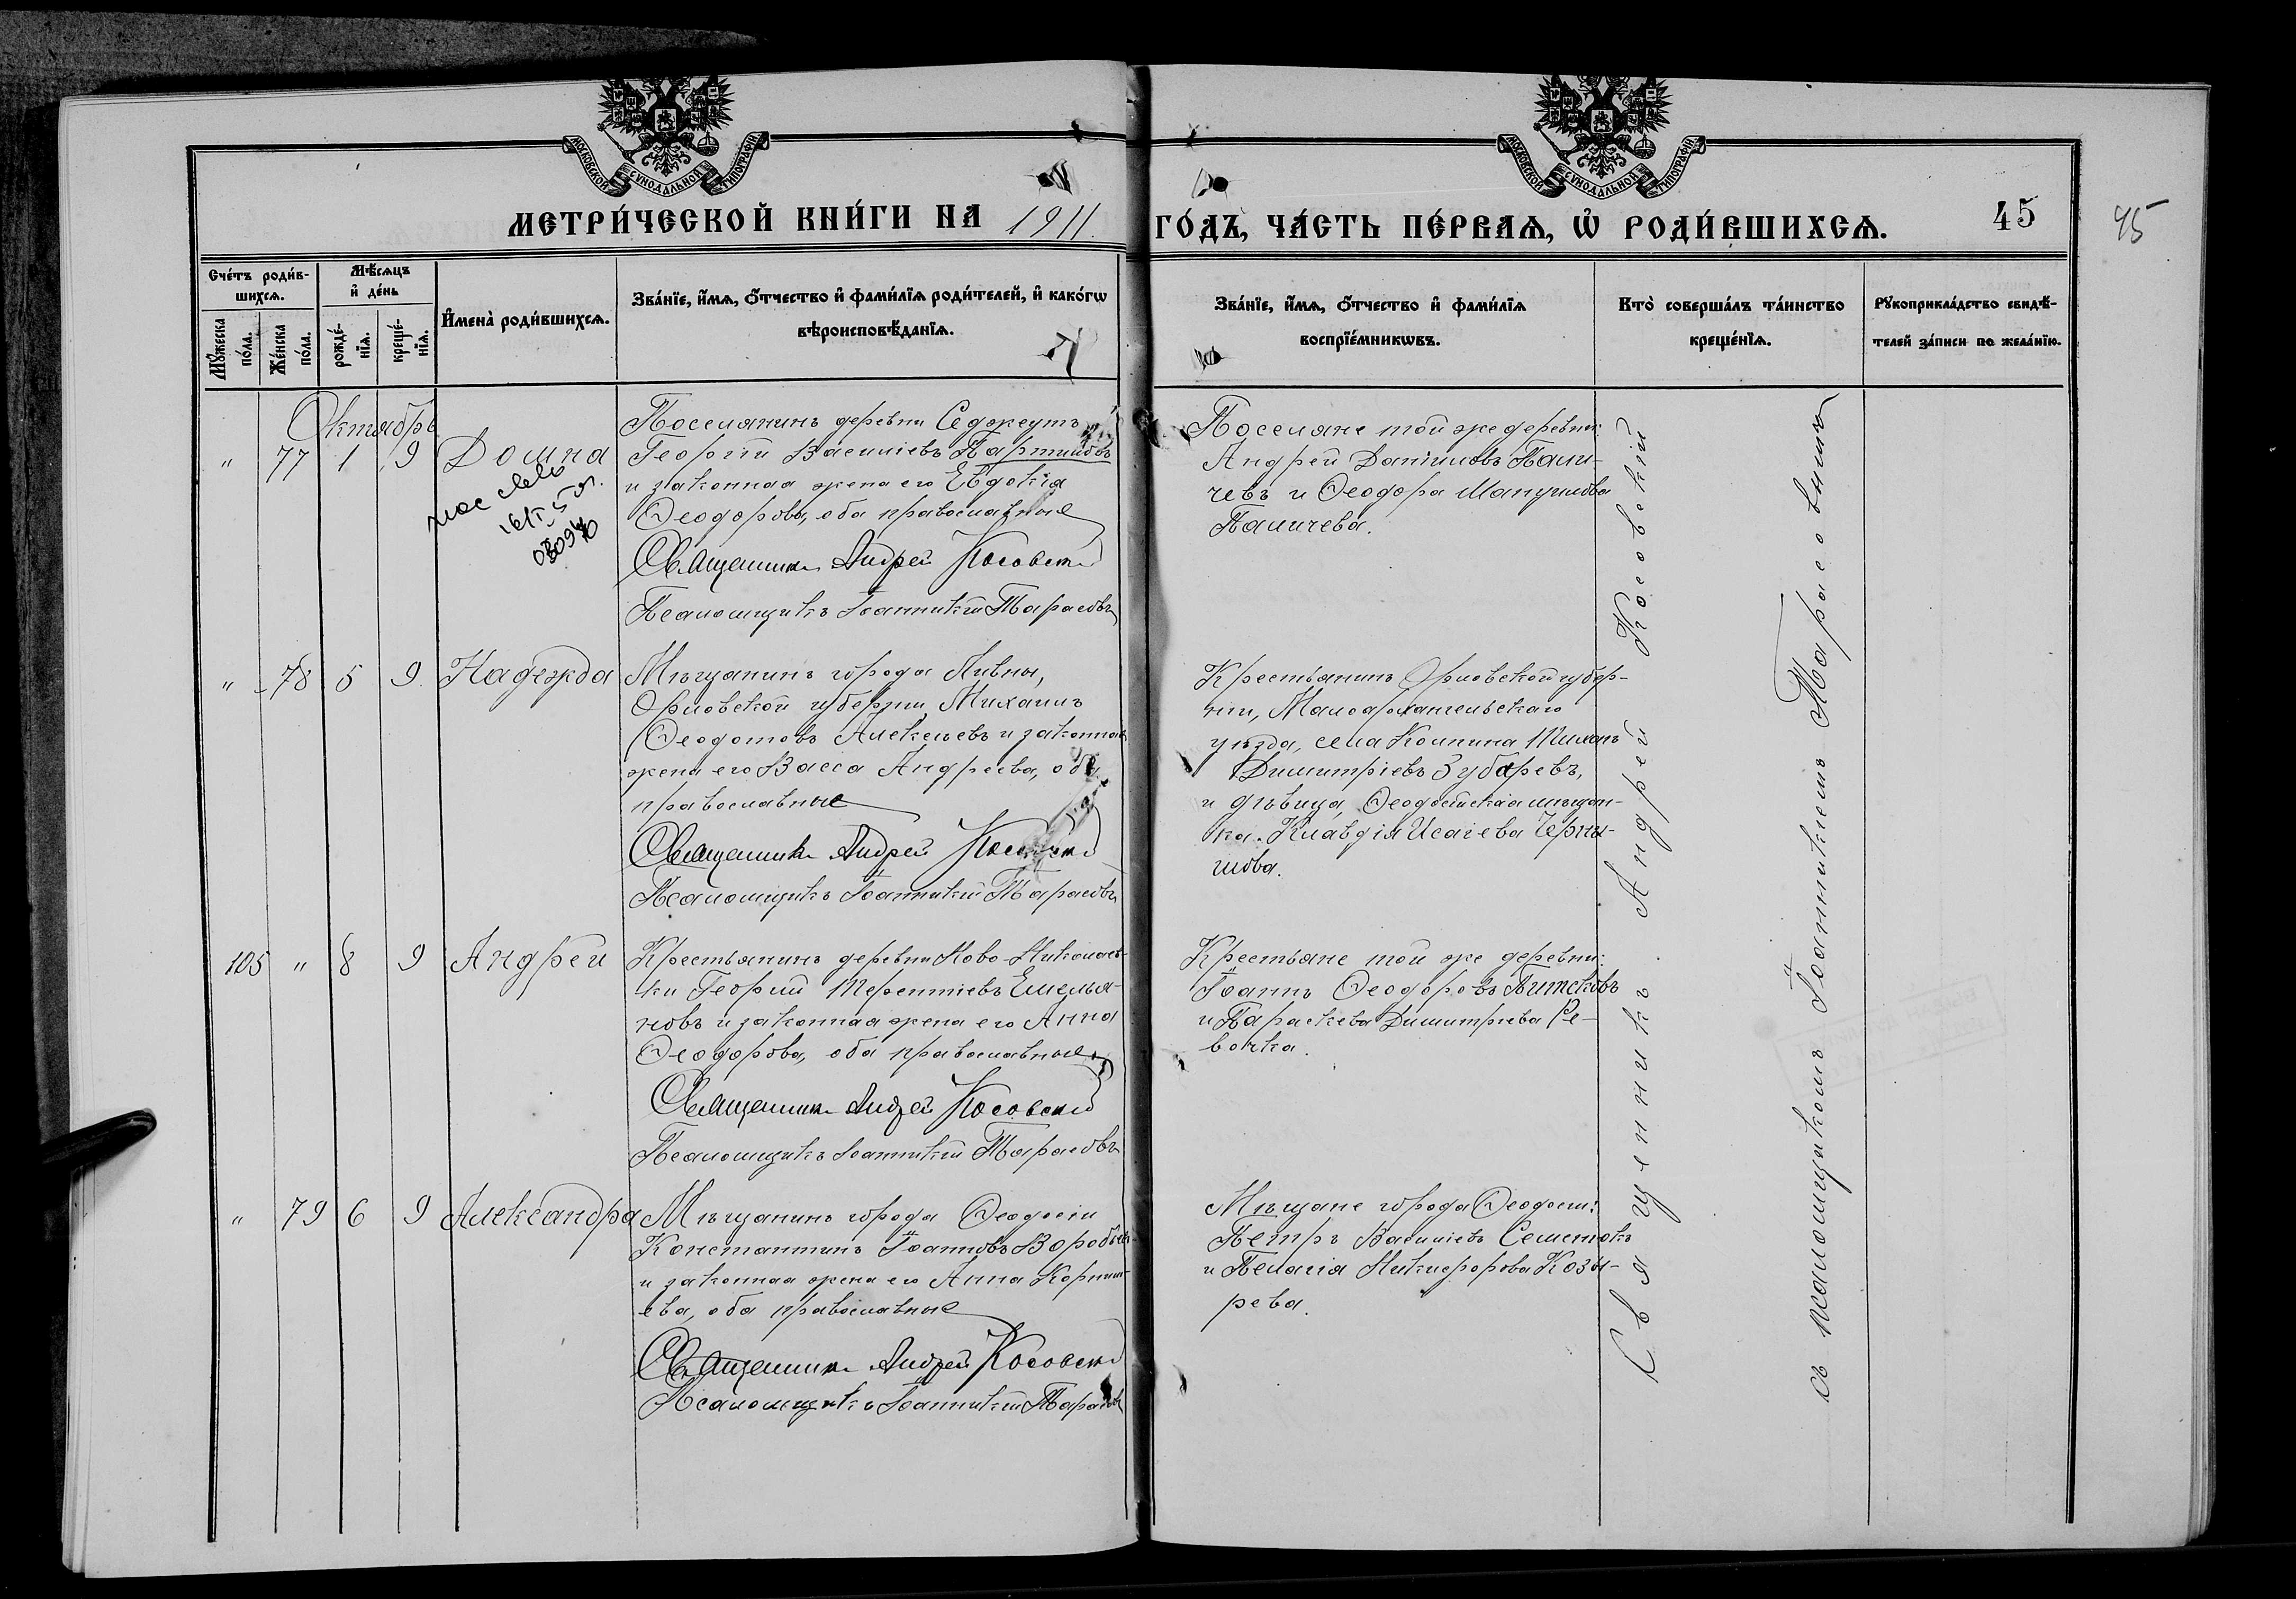 МОСКОВСКОЙ СѴНОДАЛЬНОЙ ТИПОГРАФІИ.
МОСКОВСКОЙ СѴНОДАЛЬНОЙ ТИПОГРАФІИ.
МЕТРИ́ЧЕСКОЙ КНИ́ГИ НА 1911.
ГО́ДЪ, ЧА́СТЬ ПЕ́РВАѦ, Ѡ҆ РОДИ́ВШИХСѦ. 45
45
Сче́тъ роди́в-
шихсѧ.
Мꙋ́жеска
по́ла.
Же́нска
по́ла.
Мѣ́сѧцъ
и҆ де́нь
рожде́-
нїѧ.
креще́-
нїѧ.
И҆мена̀ роди́вшихсѧ.
Зва́нїе, и҆́мѧ, ѻ҆́тчество и҆ фами́лїѧ роди́телей, и҆ како́гѡ
вѣроисповѣ́данїѧ.
Зва́нїе, и҆́мѧ, ѻ҆́тчество и҆ фами́лїѧ
воспрїе́мникѡвъ.
Кто̀ соверша́лъ та́инство
креще́нїѧ.
Рꙋкоприкла́дство свидѣ́-
телей за́писи по жела́нїю.
Октябрь
" 77 1 9 Домна
Поселянинъ деревни Седжеутъ
Георгій Василіевъ
и законная жена его Евдокія
Ѳеодорова, оба православные
Священникъ Андрей Косовскій
Псаломщикъ Іоанникій Тарасовъ
Поселяне той же деревни:
Андрей Даниловъ Пали-
чевъ и Ѳеодора Мануилова
Паличева.
" 78 5 9 Надежда
Мѣщанинъ города Ливны,
Орловской губерніи Михаилъ
Ѳеодотовъ Алексѣевъ и законная
жена его Васса Андреева, оба
православные
Священникъ Андрей Косовскій
Псаломщикъ Іоанникій Тарасовъ
Крестьянинъ Орловской губер-
ніи, Малоархангельскаго
уѣзда, села Колпина Тихонъ
Димитріевъ Зубаревъ,
и дѣвица, Ѳеодосійская мѣщан-
ка Клавдія Исаіева Черны-
шова.
105 " 8 9 Андрей
Крестьянинъ деревни Ново-Николаев-
ки Георгій Терентіевъ Емелья-
новъ и законная жена его Анна
Ѳеодорова, оба православные
Священникъ Андрей Косовскій
Псаломщикъ Іоанникій Тарасовъ
Крестьяне той же деревни:
Іоаннъ Ѳеодоровъ
и Параскева Димитріева Ре-
вочка.
" 79 6 9 Александра
Мѣщанинъ города Ѳеодосіи
Константинъ Іоанновъ Воробьевъ
и законная жена его Анна Корнил-
ева, оба православные
Священникъ Андрей Косовскій
Псаломщикъ Іоанникій Тарасовъ
Мѣщане города Ѳеодосіи:
Петръ Василіевъ
и Пелагія Никифорова Козы-
рева.
Священникъ Андрей Косовскій
съ псаломщикомъ Іоанникіемъ Тарасовымъ